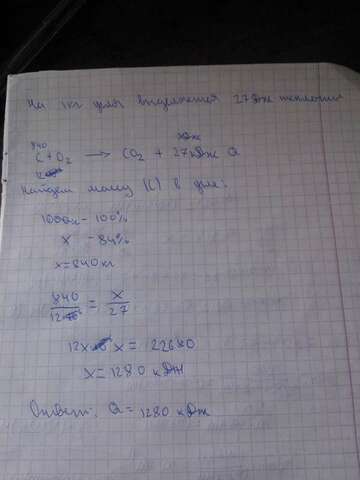 На 1кг угля выделяется 27 Дж теплоты
840 X Дж
C + O₂ → CO₂ + 27 кДж Q
12
Найдем массу (C) в угле:
1000 - 100%
x - 84%
x = 840 кг
840/12 = x/27
12x x = 22680
x = 1280 кДж
Ответ: Q = 1280 кДж